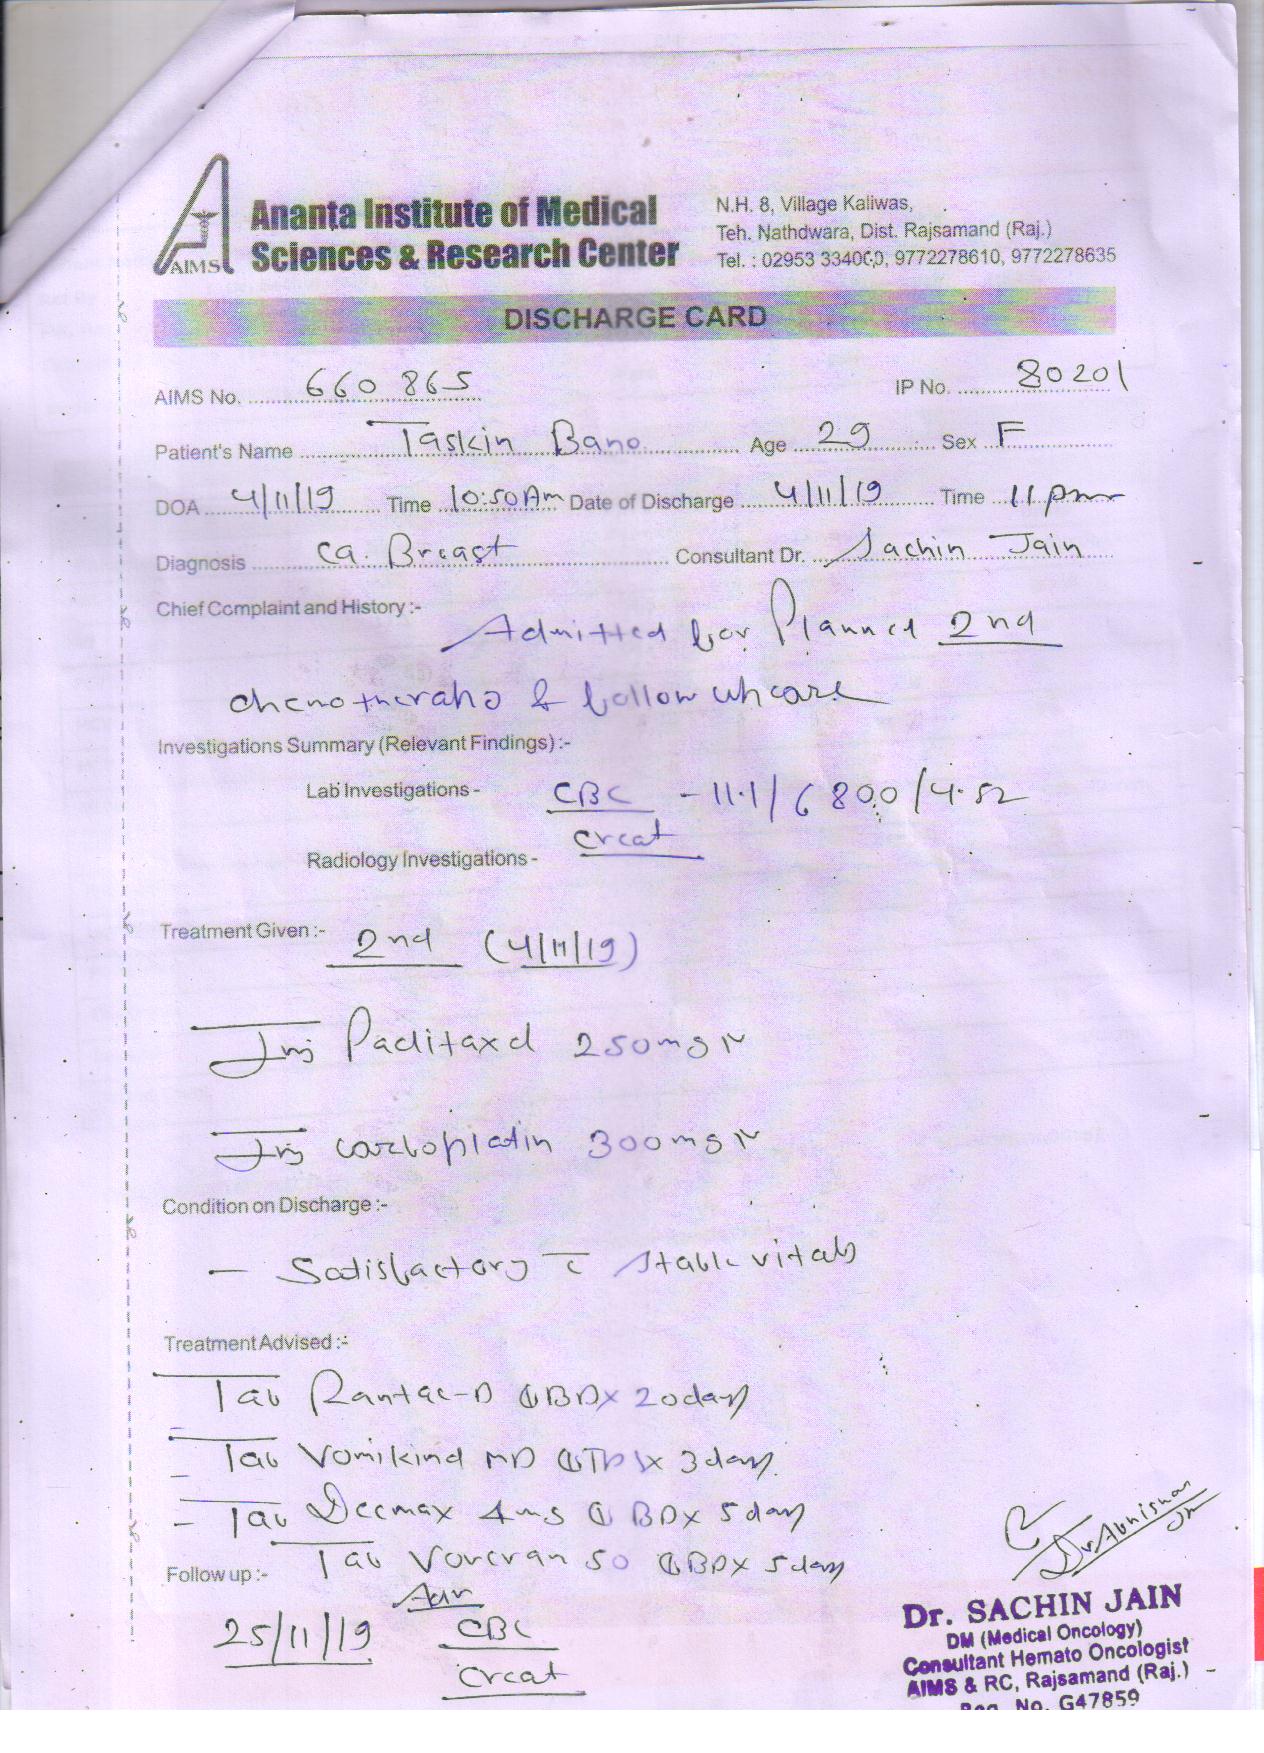 Ananta Institute of Medical
Sciences & Research Center
AIMS
N.H. 8, Village Kaliwas,
Teh. Nathdwara, Dist. Rajsamand (Raj.)
Tel. : 02953 334000, 9772278610, 9772278635
DISCHARGE CARD
AIMS No. 660865 IP No. 80201
Patient's Name Taskin Bano Age 29 Sex F
DOA 4/11/19 Time 10:50 Am Date of Discharge 4/11/19 Time 11 pm
Diagnosis Ca. Breast Consultant Dr. Sachin Jain
Chief Complaint and History :-
Admitted for Planned 2nd
chemotherapy & follow up care
Investigations Summary (Relevant Findings) :-
Lab Investigations - CBC - 11.1/6800/4.52
Creat
Radiology Investigations -
Treatment Given :- 2nd (4/11/19)
Inj Paclitaxel 250mg IV
Inj Carboplatin 300mg IV
Condition on Discharge :-
- Satisfactory c̄ stable vitals
Treatment Advised :-
Tab Rantac-D ① BD x 20 days
- Tab Vomikind MD ① TDS x 3 days
- Tab Decmax 4mg ① BD x 5 days
Tab Voveran 50 ① BD x 5 days
Follow up :-
25/11/19 CBC
Creat
Dr. SACHIN JAIN
DM (Medical Oncology)
Consultant Hemato Oncologist
AIMS & RC, Rajsamand (Raj.)
Reg. No. G47859